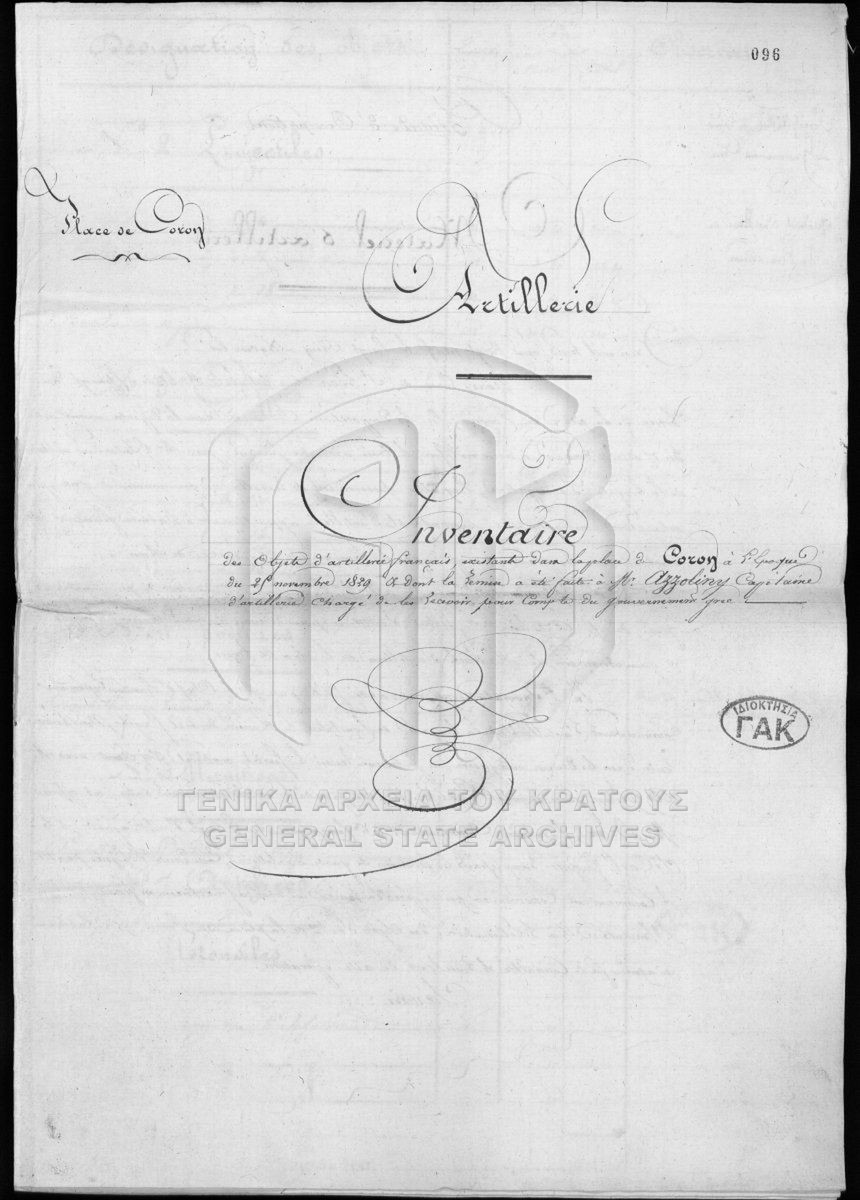 096
Place de Coron
Artillerie
Inventaire
des Objets d'artillerie français, existant dans la place de Coron à l'Epoque
du novembre 1829 et dont la remise a été faite à Mr. Azzoliny Capitaine
d'artillerie chargé de les recevoir pour Compte du gouvernement grec
ΙΔΙΟΚΤΗΣΙΑ
ΓΑΚ
ΓΕΝΙΚΑ ΑΡΧΕΙΑ ΤΟΥ ΚΡΑΤΟΥΣ
GENERAL STATE ARCHIVES